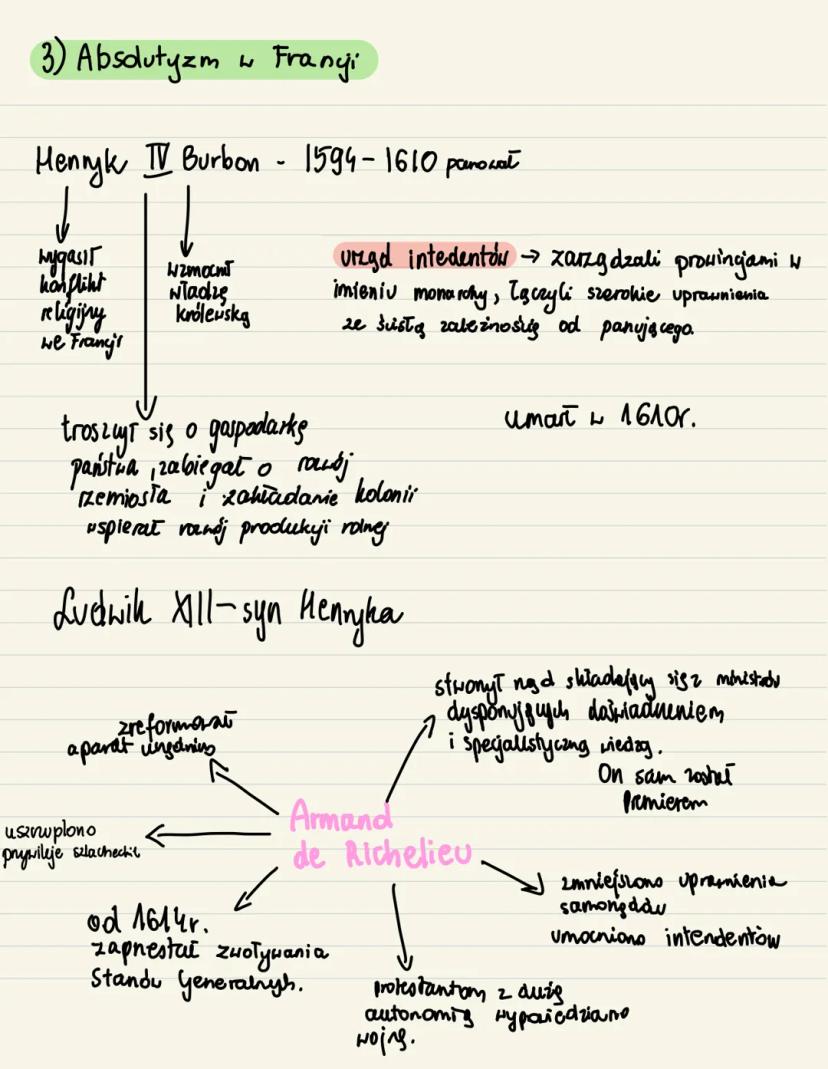 3) Absolutyzm w Francji
Henryk IV Burbon - 1594-1610 panował
wygasił
konflikt
religijny
we Francji
wzmocnił
władzę
królewską
urząd intedentów → zarządzali prowincjami w
imieniu monarchy, łączyli szerokie uprawnienia
ze ścisłą zależnością od panującego.
umarł w 1610r.
troszczył się o gospodarkę
państwa, zabiegał o rozwój
rzemiosła i zakładanie kolonii
wspierał rozwój produkcji rolnej
Ludwik XIII-syn Henryka
stworzył rząd składający się z ministrów
dysponujących doświadczeniem
i specjalistyczną wiedzą.
On sam został
Premierem
zreformował
aparat urzędniczy
Armand
de Richelieu
uszczuplono
przywileje szlacheckie
zmniejszono uprawnienia
samorządów
umocniono intendentów
od 1614r.
zaprzestał zwoływania
Stanów Generalnych.
protestantom z dużą
autonomią wypowiedziano
wojnę.